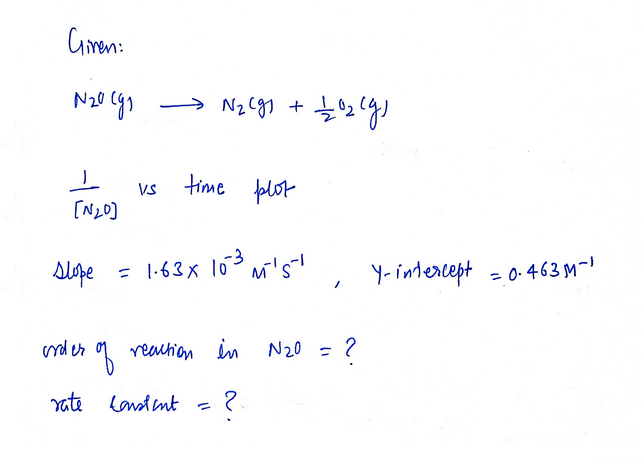 Given:
N2O(g) → N2(g) + 1/2 O2(g)
1/[N2O] vs time plot
slope = 1.63 x 10⁻³ M⁻¹s⁻¹ , Y-intercept = 0.463 M⁻¹
order of reaction in N2O = ?
rate constant = ?